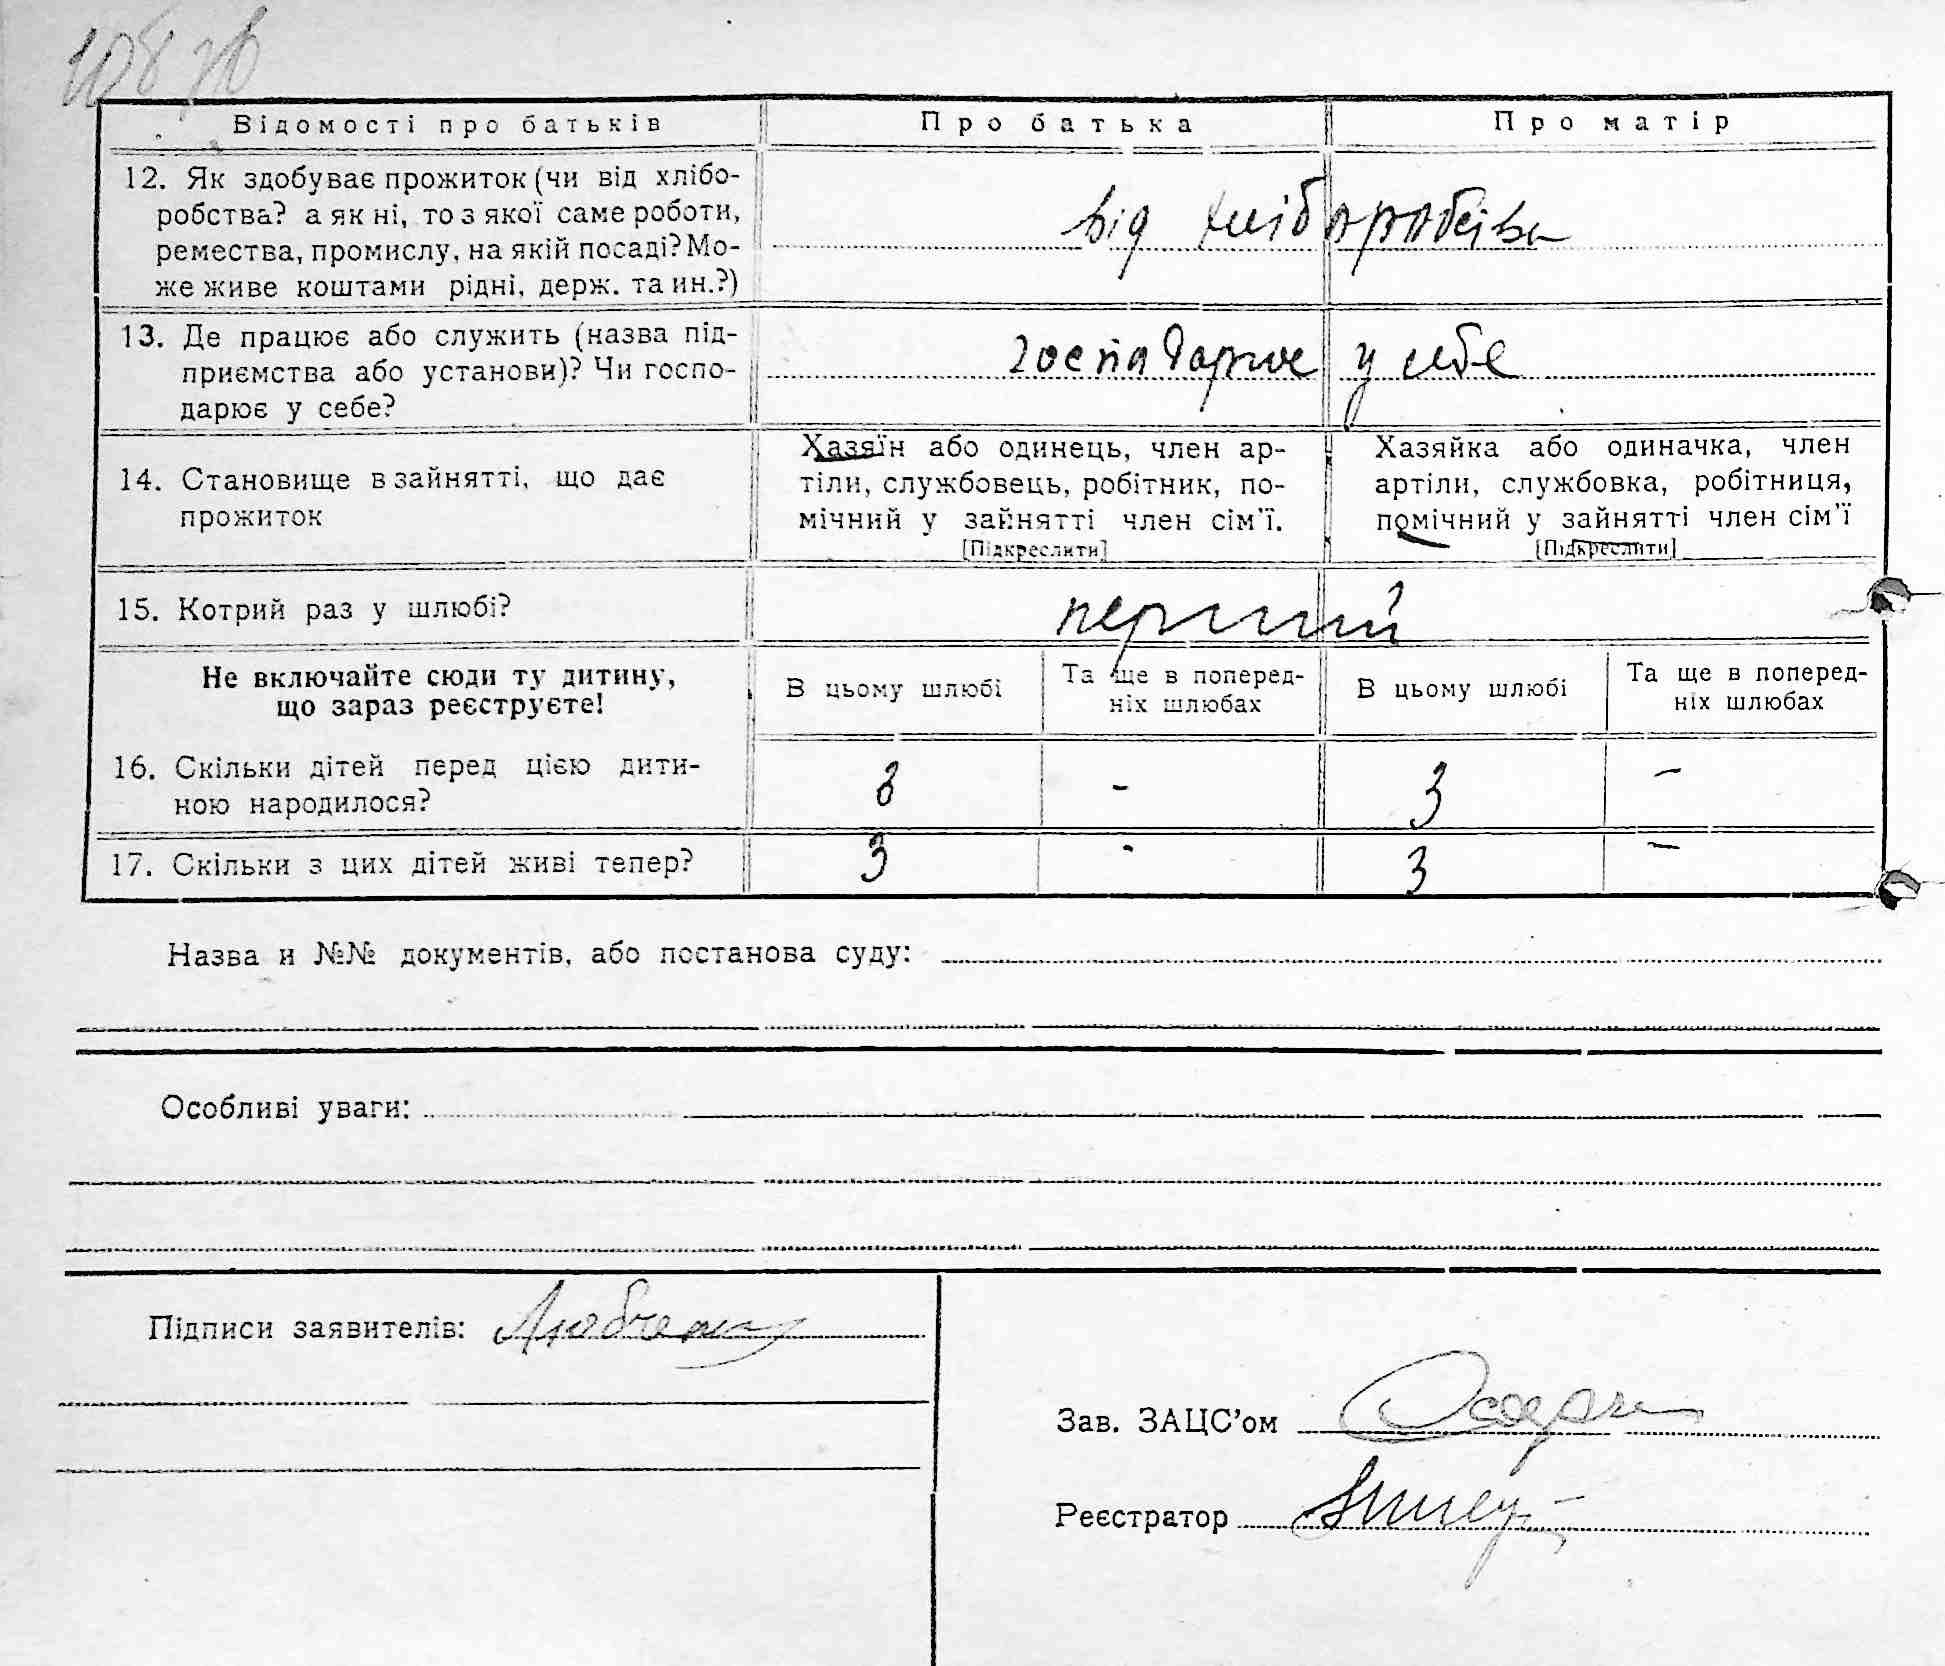 Відомості про батьків Про батька Про матір
12. Як здобуває прожиток (чи від хлібо-
робства? а як ні, то з якої саме роботи,
ремества, промислу, на якій посаді? Мо-
же живе коштами рідні, держ. та ин.?)
від хліборобства
13. Де працює або служить (назва під-
приємства або установи)? Чи госпо-
дарює у себе?
господарює у себе
14. Становище в зайнятті, що дає
прожиток
Хазяїн або одинець, член ар-
тіли, службовець, робітник, по-
мічний у зайнятті член сім'ї.
[Підкреслити]
Хазяйка або одиначка, член
артіли, службовка, робітниця,
помічний у зайнятті член сім'ї
[Підкреслити]
15. Котрий раз у шлюбі?
перший
Не включайте сюди ту дитину,
що зараз реєструєте!
В цьому шлюбі
Та ще в поперед-
ніх шлюбах
В цьому шлюбі
Та ще в поперед-
ніх шлюбах
16. Скільки дітей перед цією дити-
ною народилося?
3 - 3 -
17. Скільки з цих дітей живі тепер?
3 - 3 -
Назва и №№ документів, або постанова суду:
Особливі уваги:
Підписи заявителів:
Зав. ЗАЦС'ом
Реєстратор